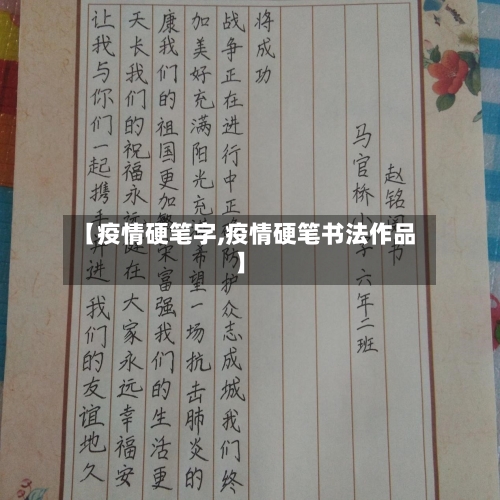 让我与你们一起携手并进我们的友谊地久
天长我们的祝福永在大家永远幸福安
康我们的祖国更加荣富强我们的生活更
加美好充满阳光充希望一场抗击肺炎的
战争正在进行中正防护众志成城我们终
将成功
马官桥小学六年二班
赵铭书
【疫情硬笔字,疫情硬笔书法作品
】